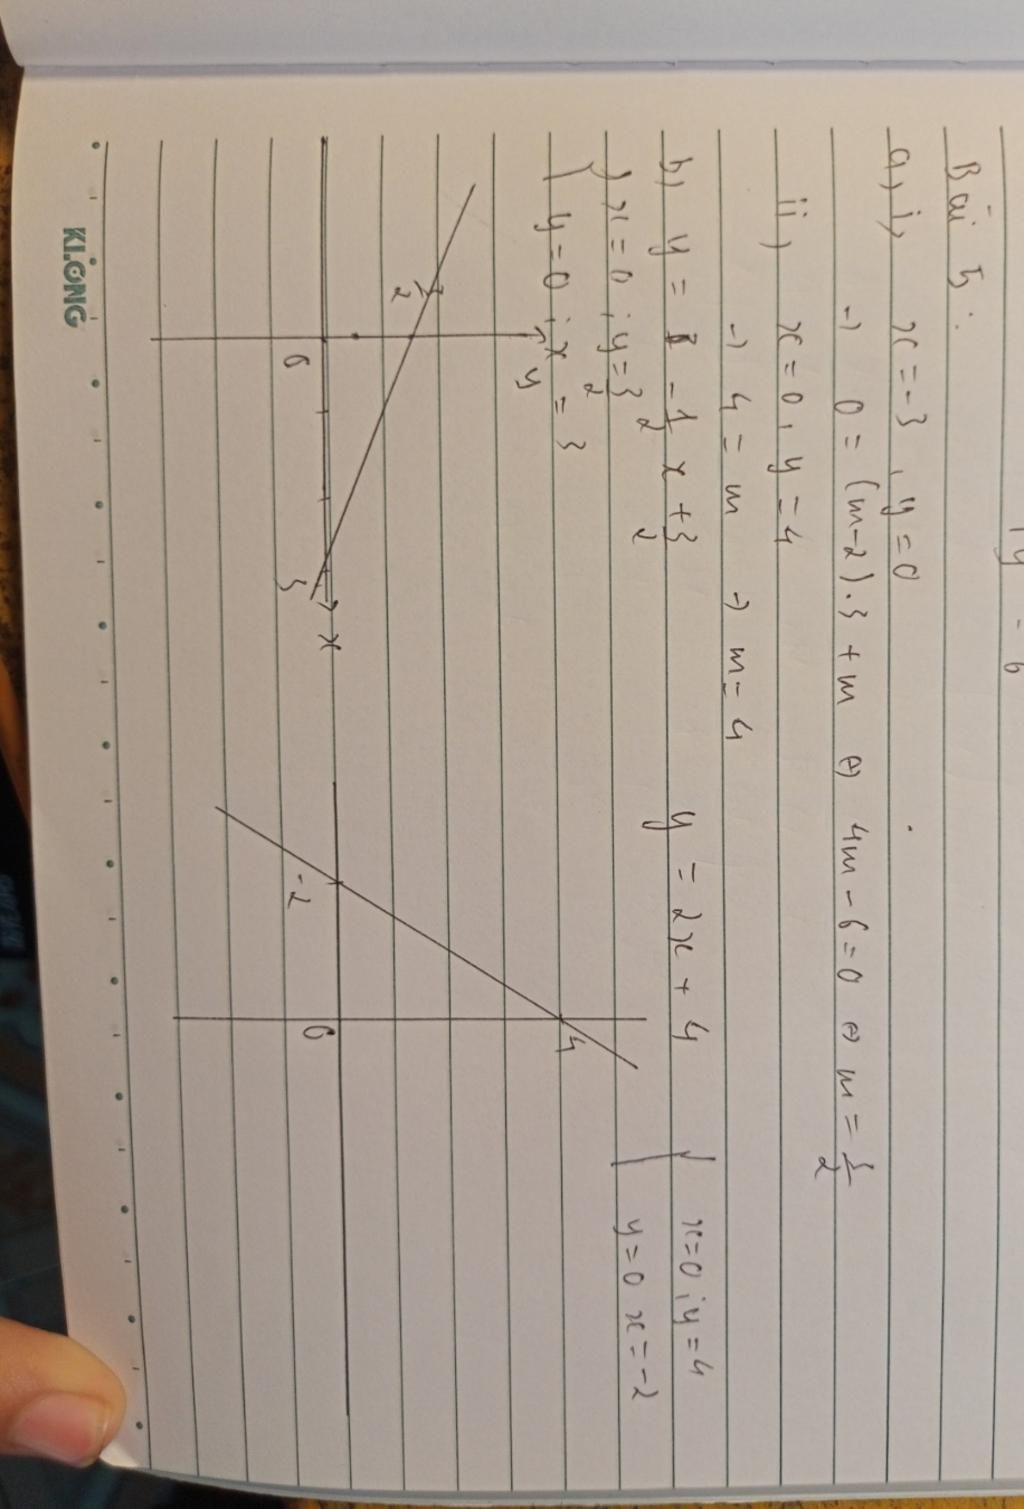 y = 6
Bài 5:
a, i, x = -3, y = 0
→ 0 = (m-2).3 + m ⇔ 4m - 6 = 0 ⇔ m = 3/2
ii, x = 0, y = 4
→ 4 = m → m = 4
b, y = -1/2 x + 3/2
x = 0; y = 3/2
y = 0; x = 3
y = 2x + 4
x = 0; y = 4
y = 0 x = -2
y
3/2
0
3
x
4
-2
0
KLONG